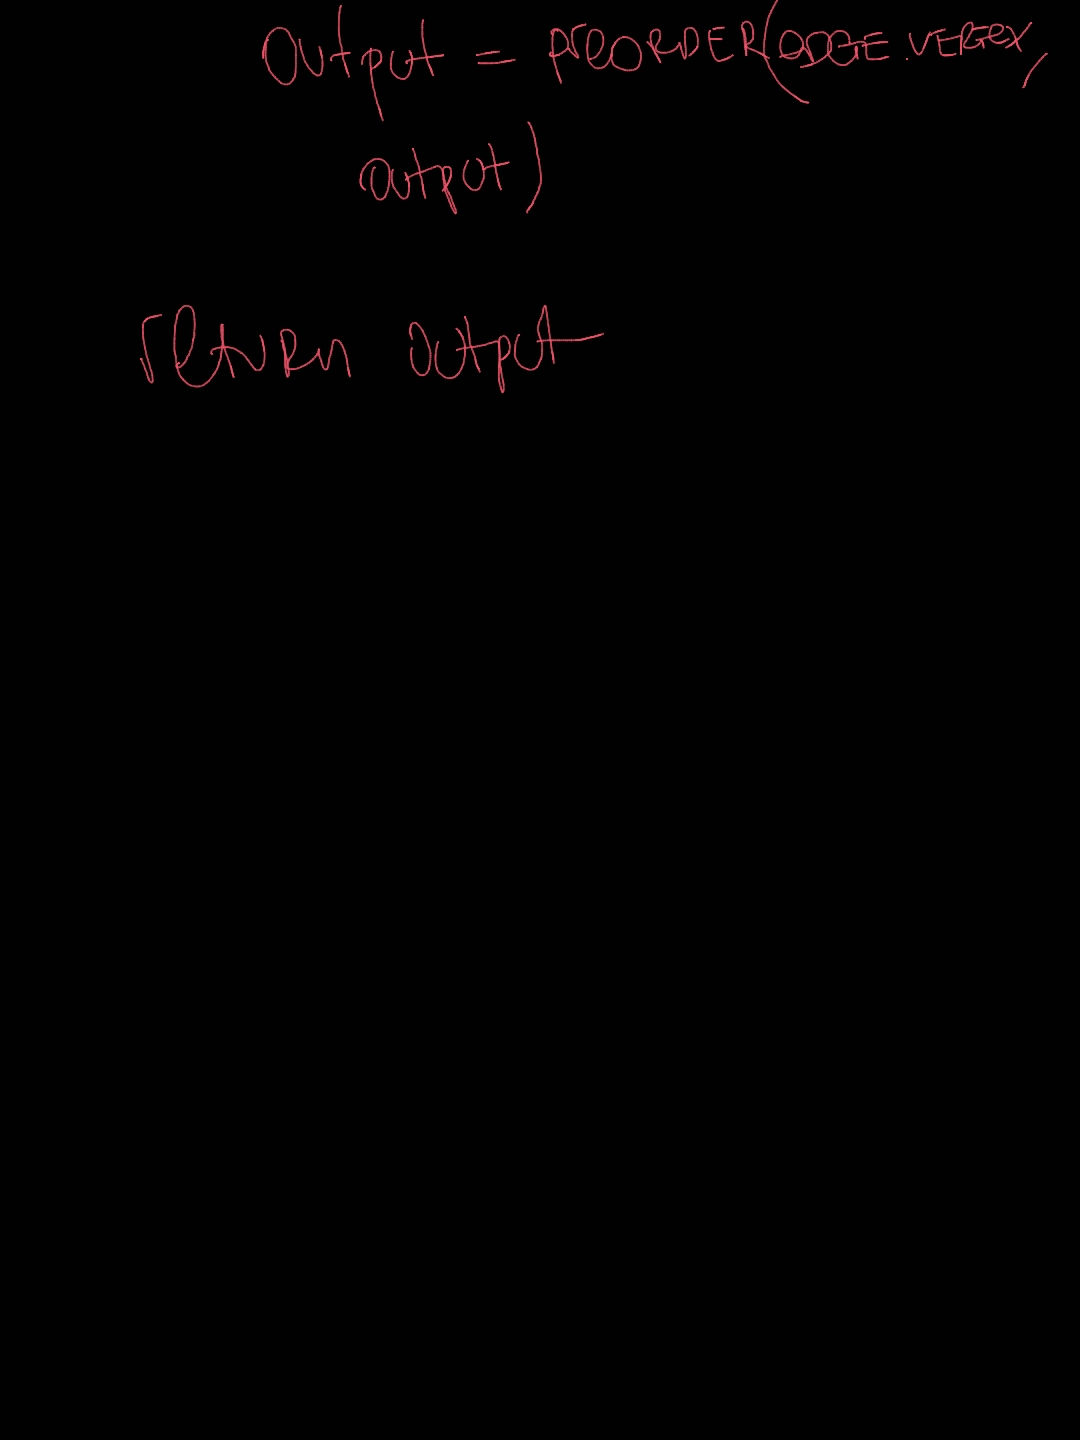 Output = PREORDER(EDGE.VERTEX,
output)
return output